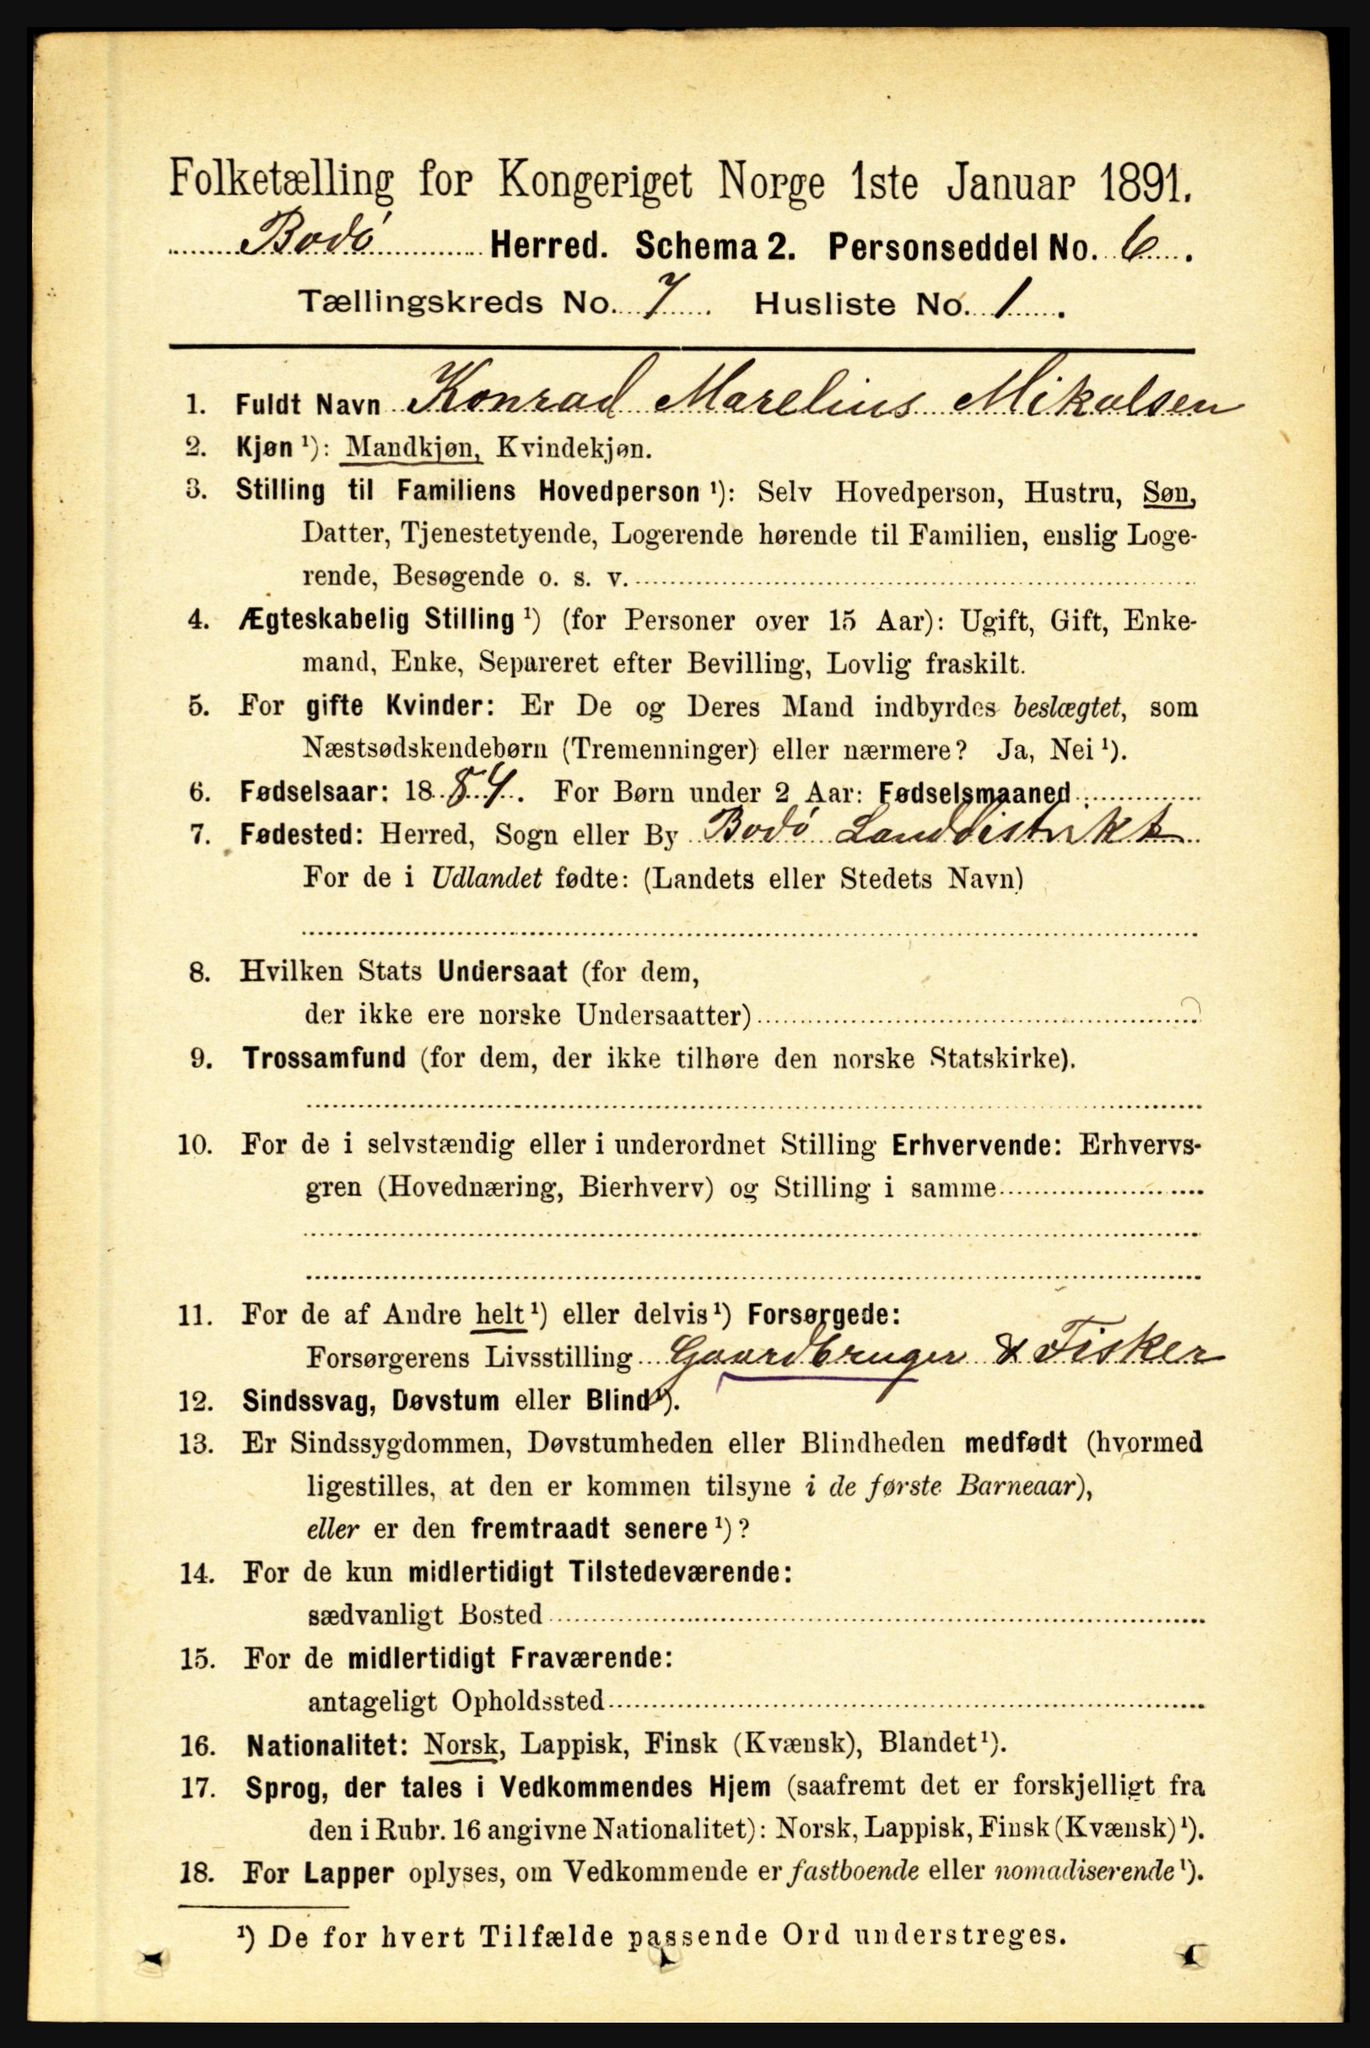 Folketælling for Kongeriget Norge 1ste Januar 1891.
Bodø Herred. Schema 2. Personseddel No. 6.
Tællingskreds No. 7 Husliste No. 1.
1. Fuldt Navn Konrad Marelius Mikalsen
2. Kjøn ¹): Mandkjøn, Kvindekjøn.
3. Stilling til Familiens Hovedperson ¹): Selv Hovedperson, Hustru, Søn,
Datter, Tjenestetyende, Logerende hørende til Familien, enslig Loge-
rende, Besøgende o. s. v.
4. Ægteskabelig Stilling ¹) (for Personer over 15 Aar): Ugift, Gift, Enke-
mand, Enke, Separeret efter Bevilling, Lovlig fraskilt.
5. For gifte Kvinder: Er De og Deres Mand indbyrdes beslægtet, som
Næstsødskendebørn (Tremenninger) eller nærmere? Ja, Nei ¹).
6. Fødselsaar: 1884. For Børn under 2 Aar: Fødselsmaaned
7. Fødested: Herred, Sogn eller By Bodø Landdistrikt
For de i Udlandet fødte: (Landets eller Stedets Navn)
8. Hvilken Stats Undersaat (for dem,
der ikke ere norske Undersaatter)
9. Trossamfund (for dem, der ikke tilhøre den norske Statskirke).
10. For de i selvstændig eller i underordnet Stilling Erhvervende: Erhvervs-
gren (Hovednæring, Bierhverv) og Stilling i samme
11. For de af Andre helt ¹) eller delvis ¹) Forsørgede:
Forsørgerens Livsstilling Gaardbruger & Fisker
12. Sindssvag, Døvstum eller Blind ¹).
13. Er Sindssygdommen, Døvstumheden eller Blindheden medfødt (hvormed
ligestilles, at den er kommen tilsyne i de første Barneaar),
eller er den fremtraadt senere ¹)?
14. For de kun midlertidigt Tilstedeværende:
sædvanligt Bosted
15. For de midlertidigt Fraværende:
antageligt Opholdssted
16. Nationalitet: Norsk, Lappisk, Finsk (Kvænsk), Blandet ¹).
17. Sprog, der tales i Vedkommendes Hjem (saafremt det er forskjelligt fra
den i Rubr. 16 angivne Nationalitet): Norsk, Lappisk, Finsk (Kvænsk) ¹).
18. For Lapper oplyses, om Vedkommende er fastboende eller nomadiserende ¹).
¹) De for hvert Tilfælde passende Ord understreges.